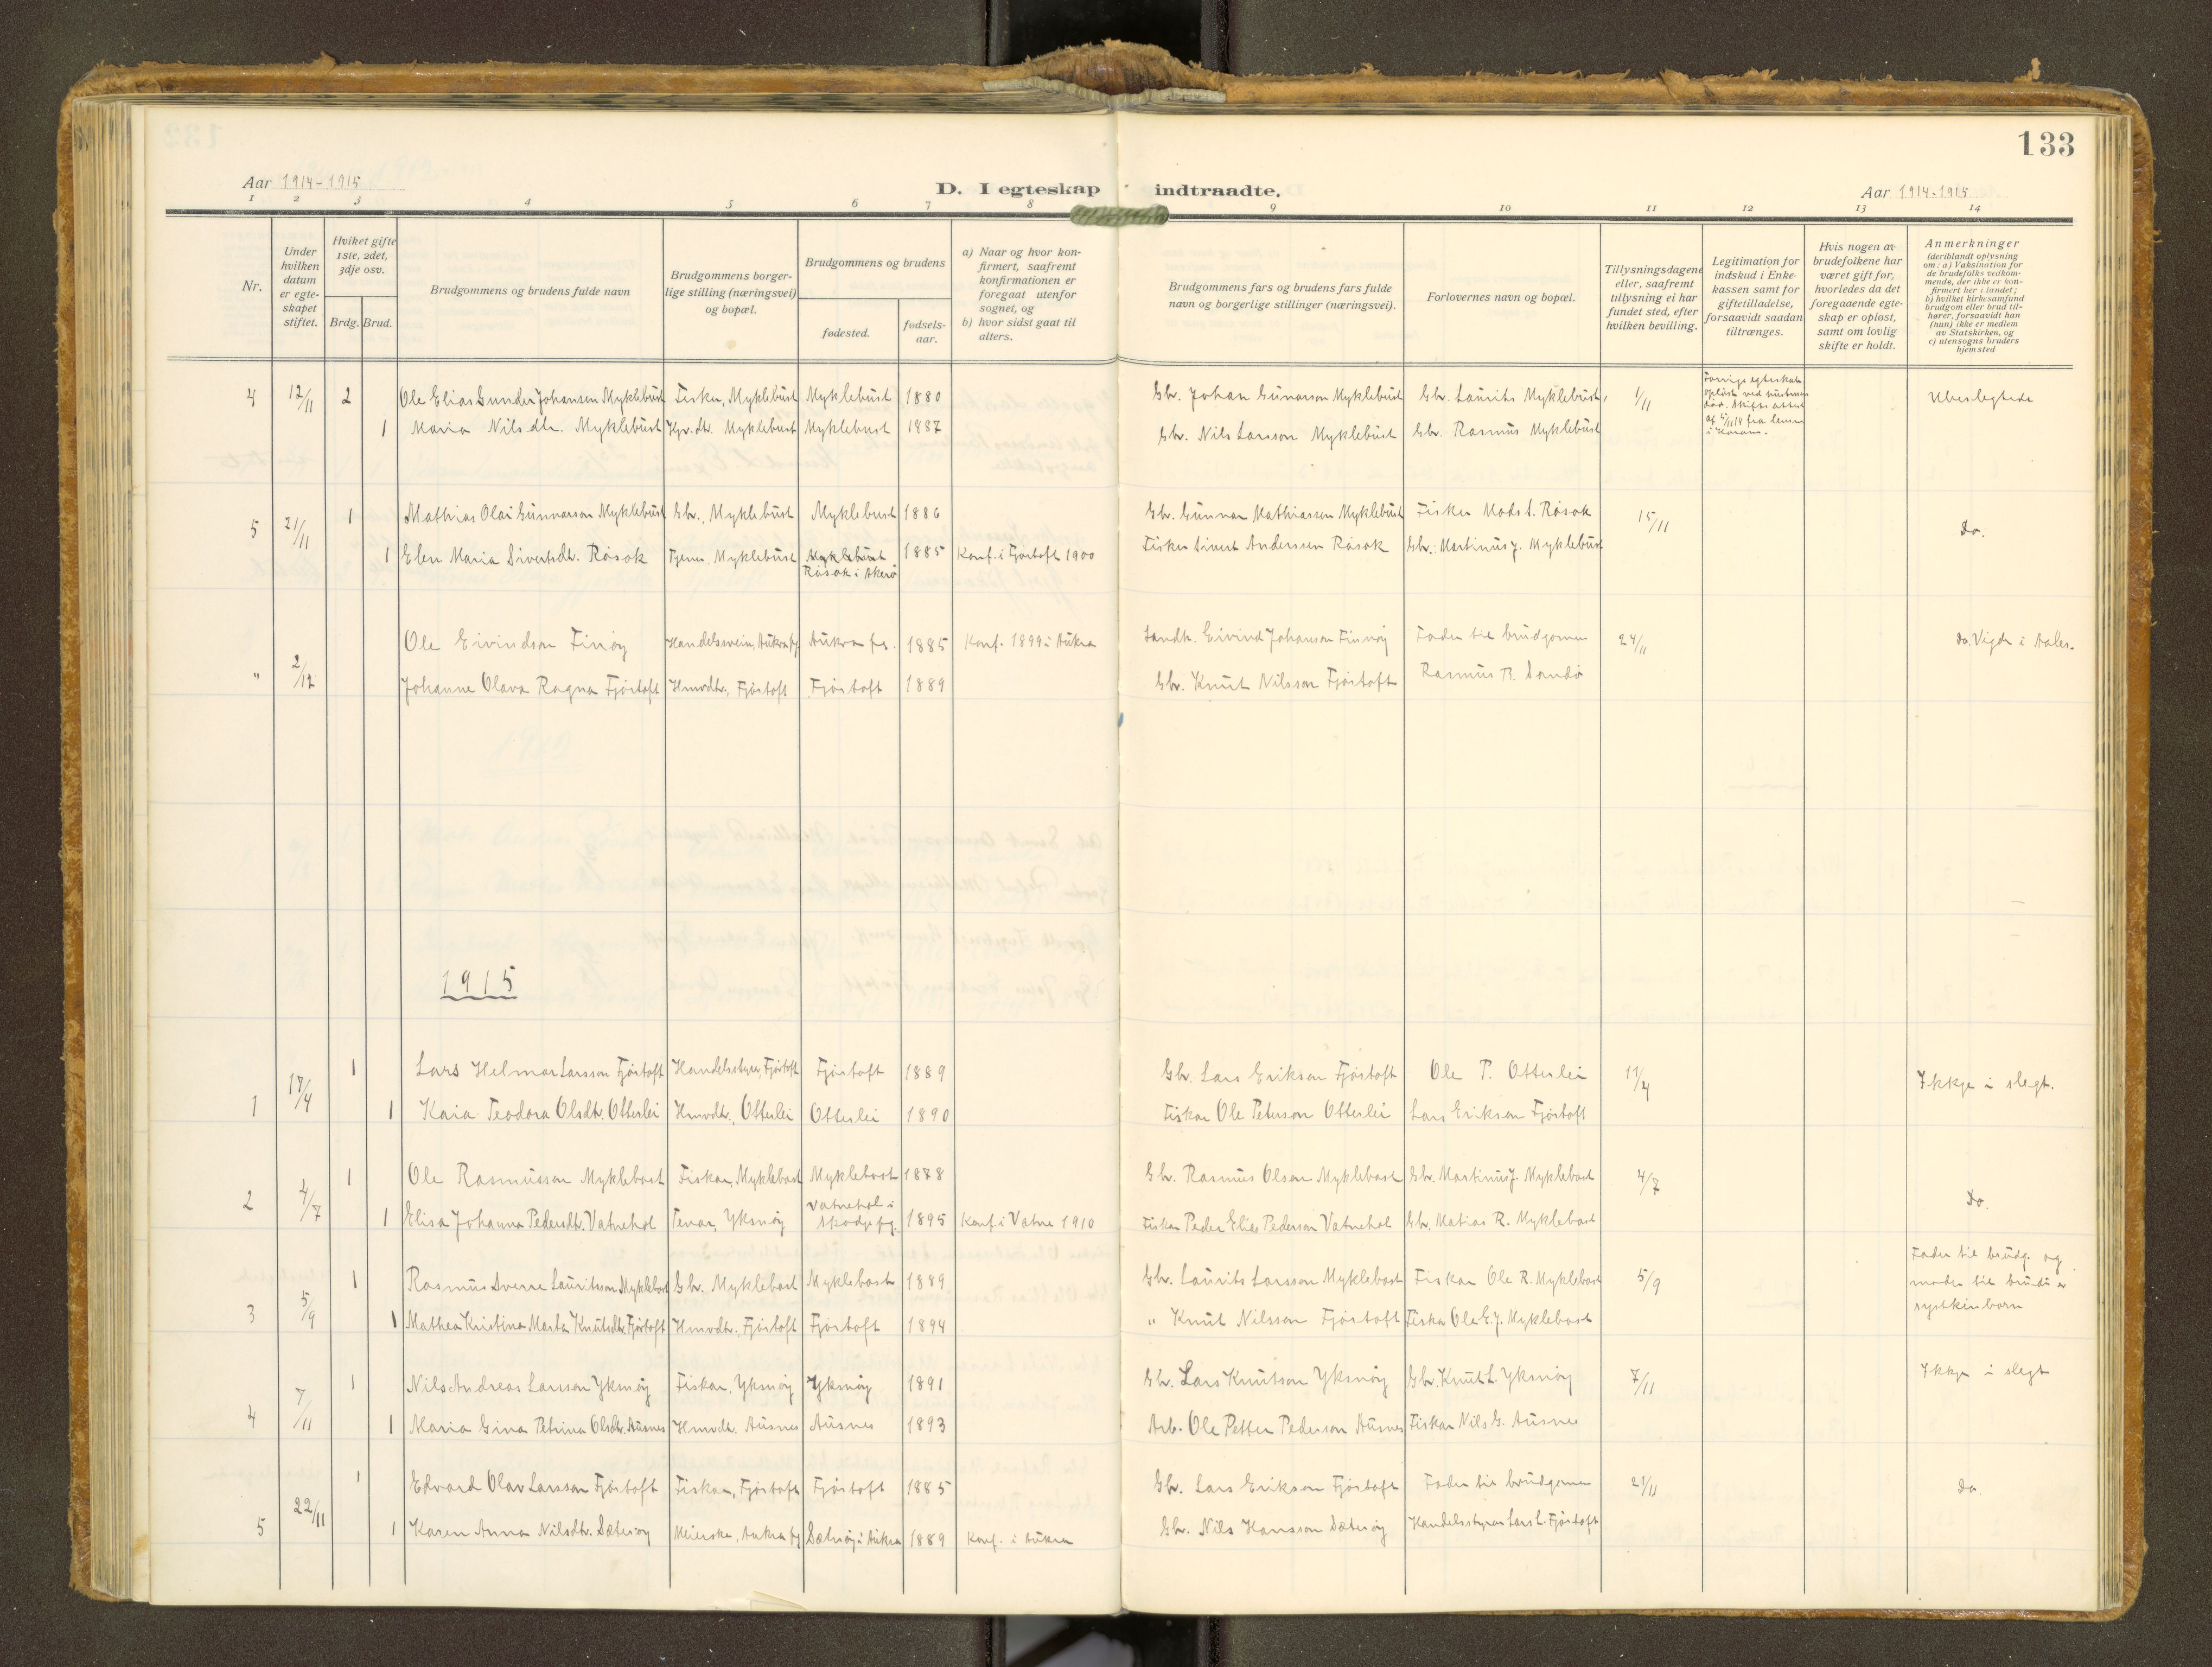 133
Aar 1914-1915
D. I egteskap indtraadte.
Aar 1914-1915
1 2 3 4 5 6 7 8 9 10 11 12 13 14
Nr.
Under hvilken datum er egteskapet stiftet.
Hvilket gifte 1ste, 2det, 3dje osv.
Brdg. Brud.
Brudgommens og brudens fulde navn
Brudgommens borgerlige stilling (næringsvei) og bopæl.
Brudgommens og brudens
fødested.
fødselsaar.
a) Naar og hvor konfirmert, saafremt konfirmationen er foregaat utenfor sognet, og
b) hvor sidst gaat til alters.
Brudgommens fars og brudens fars fulde navn og borgerlige stillinger (næringsvei).
Forlovernes navn og bopæl.
Tillysningsdagene eller, saafremt tillysning ei har fundet sted, efter hvilken bevilling.
Legitimation for indskud i Enkekassen samt for giftetilladelse, forsaavidt saadan tiltrænges.
Hvis nogen av brudefolkene har været gift før, hvorledes da det foregaaende egteskap er opløst, samt om lovlig skifte er holdt.
Anmerkninger (deriblandt oplysning om: a) Vaksination for de brudefolks vedkommende, der ikke er konfirmert her i landet; b) hvilket kirkesamfund brudgom eller brud tilhører, forsaavidt han (hun) ikke er medlem av Statskirken, og c) utensogns bruders hjemsted
4 12/11 2 Ole Elias Gunder Johansen Myklebust Fisker, Myklebust Myklebust 1880 Gbr. Johan Gunarson Myklebust Gbr. Laurits Myklebust, 1/11 Forrige egteskab opløst ved hustruens død. Skifteattest af 5/11 14 fra lensm. i Haram. Ubeslegtede
1 Maria Nilsdtr. Myklebust Gbr.dtr. Myklebust Myklebust 1887 Gbr. Nils Larsson Myklebust Gbr. Rasmus Myklebust
5 21/11 1 Mathias Olai Gunnarson Myklebust Gbr., Myklebust Myklebust 1886 Gbr. Gunnar Mathiassen Myklebust Fisker Mads S. Røsok 15/11 Do.
1 Elen Maria Sivertsdtr. Røsok Tjener, Myklebust Myklebust Røsok i Akerø 1885 Konf. i Fjørtoft 1900 Fisker Sivert Anderssen Røsok Gbr. Martinus J. Myklebust
" 2/12 Ole Eivindson Finøy Handelssvein, Aukra pg. Aukra pg. 1885 Konf. 1899 i Aukra Landh. Eivind Johanson Finnøy Fader til brudgomen 24/11 do. Vigde i Aales.
Johanne Olava Ragna Fjørtoft Hmvdtr., Fjørtoft Fjørtoft 1889 Gbr. Knut Nilsson Fjørtoft Rasmus B. Sandø
1915
1 17/4 1 Lars Helmar Larsson Fjørtoft Handelsstyrer, Fjørtoft Fjørtoft 1889 Gbr. Lars Erikson Fjørtoft Ole P. Otterlei 11/4 Ikkje i slegt.
1 Kaia Teodora Olsdtr. Otterlei Hmvdtr., Otterlei Otterlei 1890 Fiskar Ole Peterson Otterlei Lars Erikson Fjørtoft
2 4/7 1 Ole Rasmusson Myklebost Fiskar, Myklebost Myklebost 1878 Gbr. Rasmus Olson Myklebost Gbr. Martinus J. Myklebost 4/7 Do.
1 Elisa Johanna Pedersdtr. Vatnehol Tenar, Yksnøy Vatnehol i Skodje pg. 1895 Konf. i Vatne 1910 Fiskar Peder Elias Pederson Vatnehol Gbr. Matias R. Myklebost
3 5/9 1 Rasmus Sverre Lauritsson Myklebost Gbr. Myklebost Myklebost 1889 Gbr. Laurits Larsson Myklebost Fiskar Ole R. Myklebost 5/9 Fader til brudg. og moder til brudi er syskinborn
1 Mathea Kristina Marta Knutsdtr. Fjørtoft Hmvdtr. Fjørtoft Fjørtoft 1894 " Knut Nilsson Fjørtoft Fiskar Ole E. J. Myklebost
4 7/11 1 Nils Andreas Larsson Yksnøy Fiskar, Yksnøy Yksnøy 1891 Gbr. Lars Knutson Yksnøy Gbr. Knut L. Yksnøy 7/11 Ikkje i slegt
1 Maria Gina Petrina Olsdtr. Ausnes Hmvdtr. Ausnes Ausnes 1893 Arb. Ole Petter Pederson Ausnes Fiskar Nils G. Ausnes
5 22/11 1 Edvard Olav Larsson Fjørtoft Fiskar, Fjørtoft Fjørtoft 1885 Gbr. Lars Erikson Fjørtoft Fader til brudgomen 21/11 do
1 Karen Anna Nilsdtr. Sæterøy Meierske, Aukra pg Sæterøy i Aukra 1889 Konf. i Aukra Gbr. Nils Hansson Sæterøy Handelsstyrar Lars L. Fjørtoft